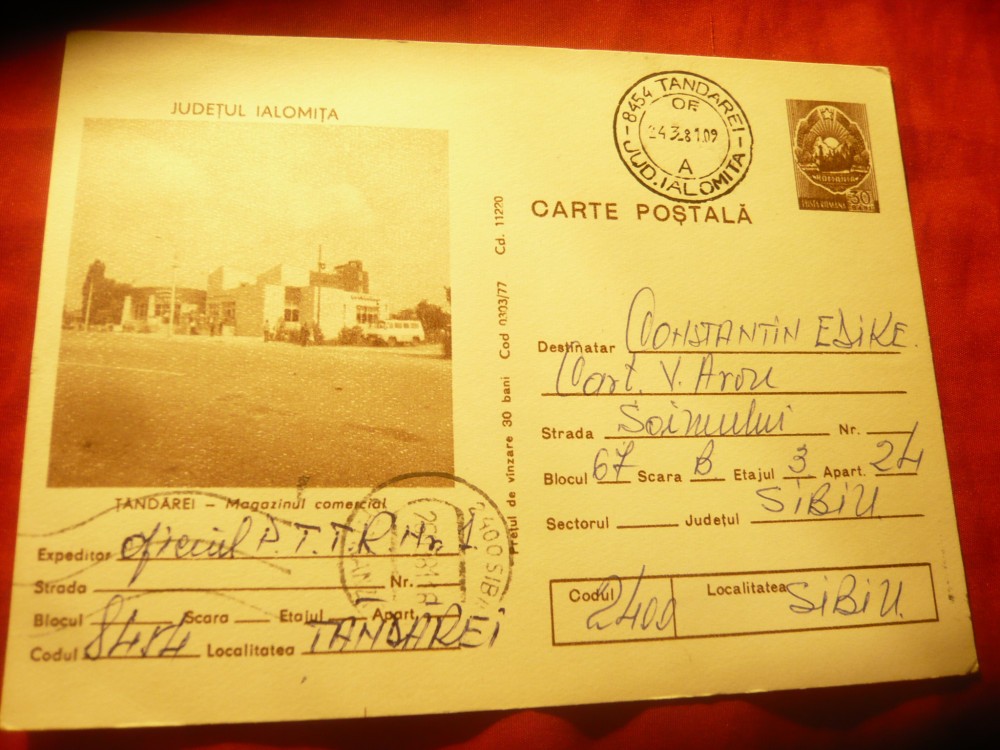 JUDEȚUL IALOMIȚA
ȚĂNDĂREI — Magazinul comercial
Expeditor oficiul P.T.T.R Nr. 1
Strada Nr.
Blocul Scara Etajul Apart.
Codul 8454 Localitatea TANDAREI
Prețul de vînzare 30 bani Cod 0303/77 Cd. 11220
8454 TANDAREI
OF
24.3.81.09
A
JUD. IALOMITA
ROMANIA
POSTA ROMANA 30
CARTE POȘTALĂ
Destinatar CONSTANTIN EDIKE.
Cart. V. Aron
Strada Soimului Nr.
Blocul 67 Scara B Etajul 3 Apart. 24
Sectorul Județul SIBIU
Codul 2400 Localitatea SIBIU.
2400 SIBIU